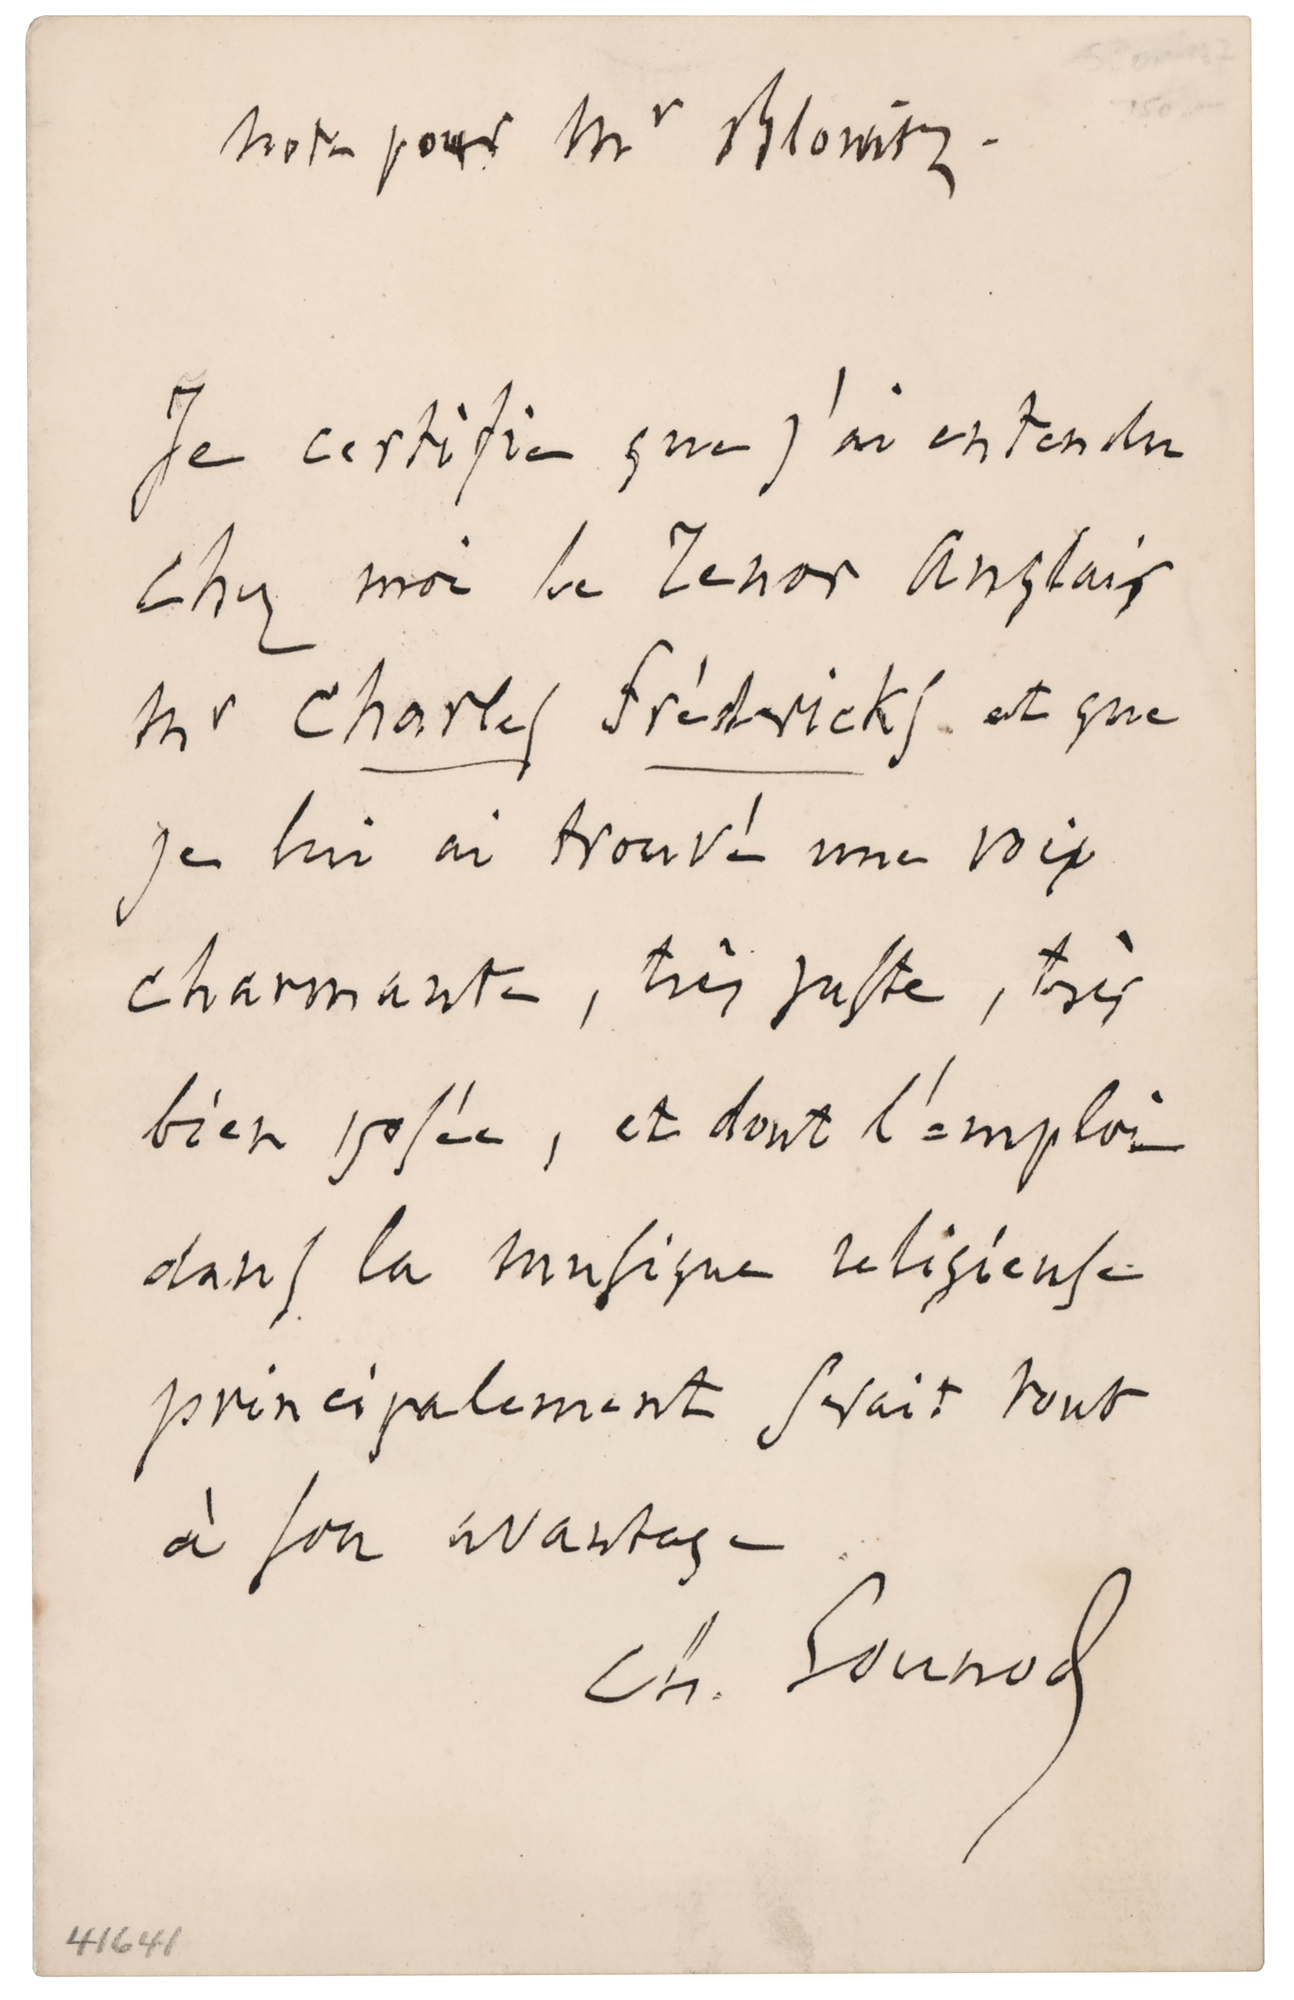 note pour Mr Blowitz -
Je certifie que j'ai entendu
chez moi le Tenor Anglais
Mr Charles Frédericks et que
je lui ai trouvé une voix
charmante, très juste, très
bien posée, et dont l'emploi
dans la musique religieuse
principalement serait tout
à son avantage
Ch. Gounod
41641